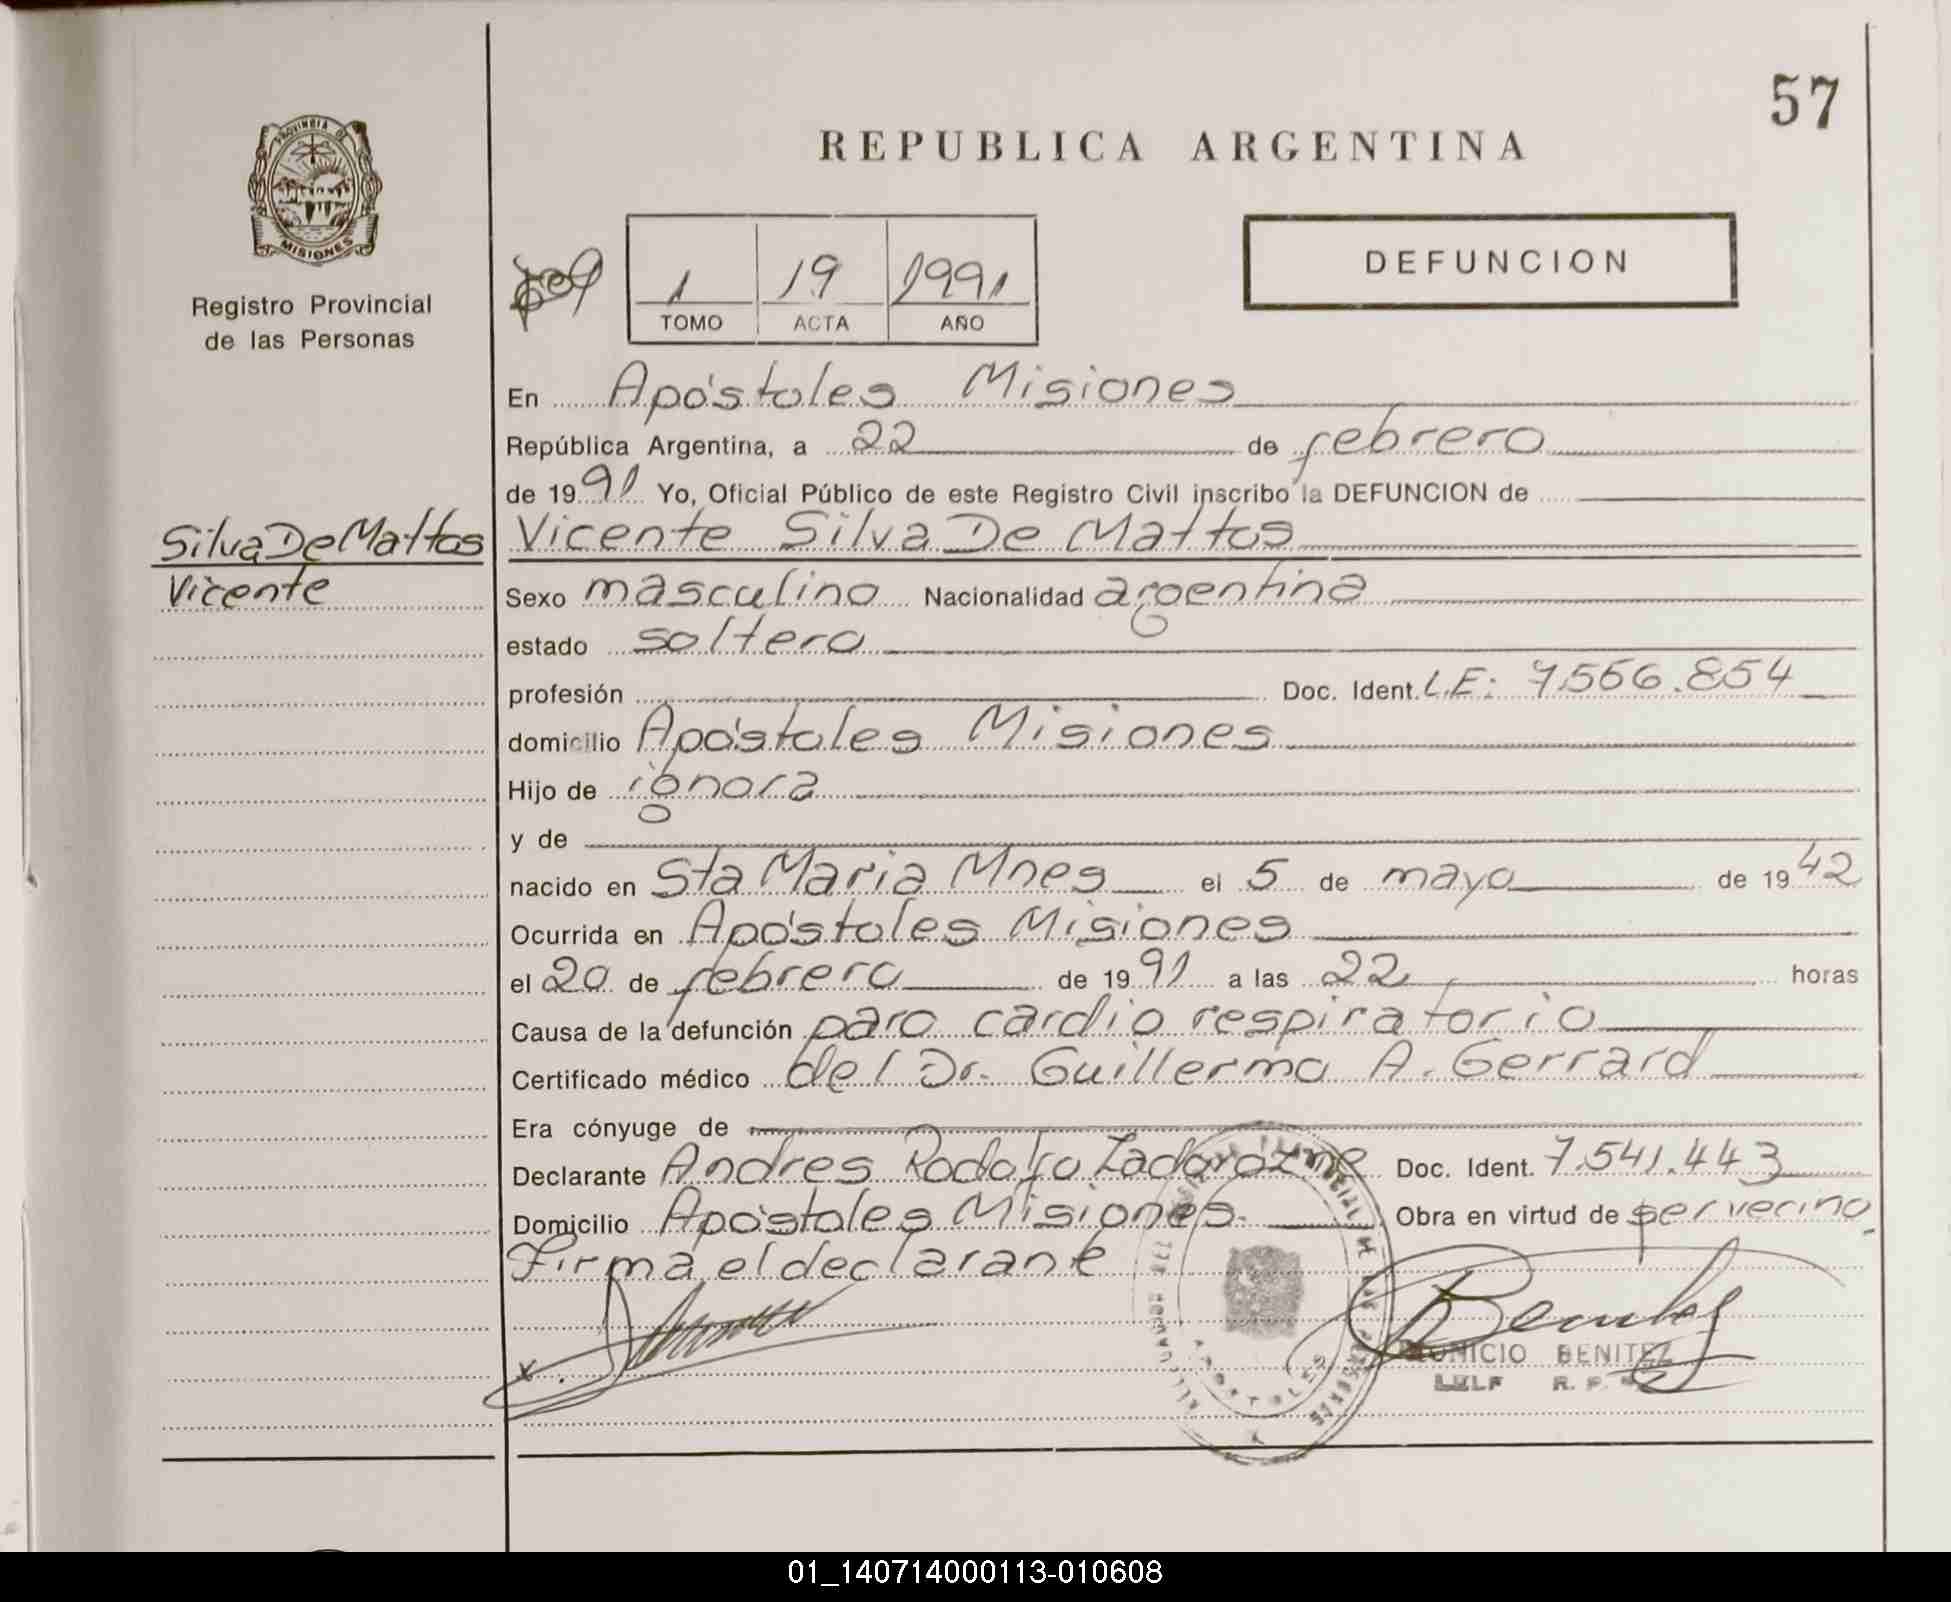 57
PROVINCIA DE
MISIONES
Registro Provincial
de las Personas
REPUBLICA ARGENTINA
DEFUNCION
1 19 1991
TOMO ACTA AÑO
En Apóstoles Misiones
República Argentina, a 22 de febrero
de 1991 Yo, Oficial Público de este Registro Civil inscribo la DEFUNCION de
Silva De Mattos
Vicente
Vicente Silva De Mattos
Sexo masculino Nacionalidad argentina
estado soltero
profesión Doc. Ident. L.E: 7.566.854
domicilio Apóstoles Misiones
Hijo de ignora
y de
nacido en Sta Maria Mnes el 5 de mayo de 1942
Ocurrida en Apóstoles Misiones
el 20 de febrero de 1991 a las 22 horas
Causa de la defunción paro cardio respiratorio
Certificado médico del Dr. Guillermo A. Gerrard
Era cónyuge de
Declarante Andres Rodolfo Doc. Ident. 7.541.443
Domicilio Apóstoles Misiones Obra en virtud de ser vecino,
Firma el declarante
BENITEZ
01_140714000113-010608